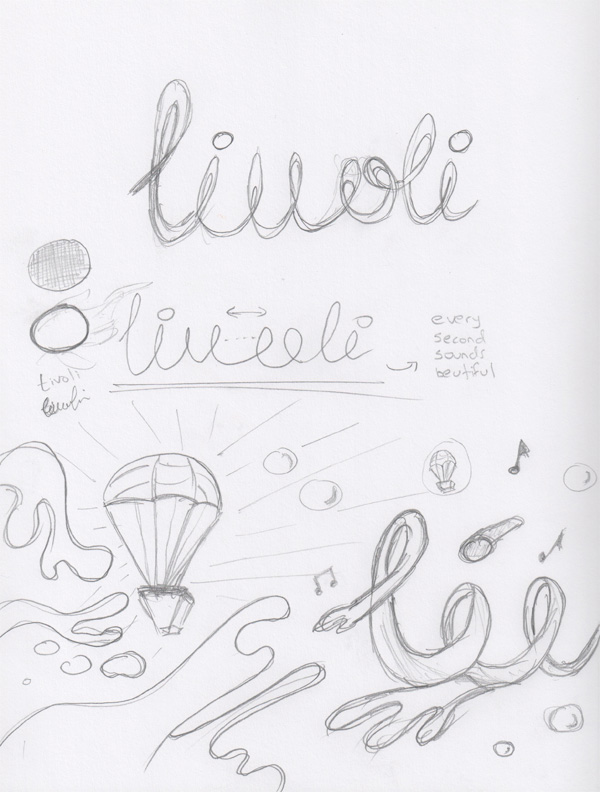 tivoli
tivoli
every
second
sounds
beutiful
tivoli
tivoli